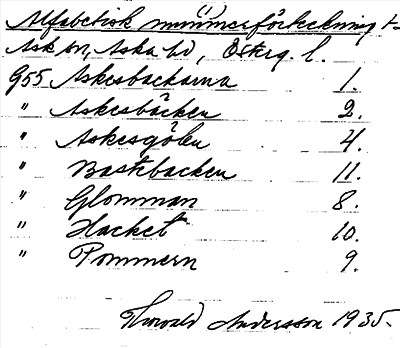 Alfabetisk nummerförteckning t.
Ask sn, Aska hd, Österg. l.
G55 Askesbackarna 1.
" Askesbäcken 2.
" Askesgölen 4.
" Bastebacken 11.
" Glomman 8.
" Hacket 10.
" Pommern 9.
Thorvald Andersson 1935.